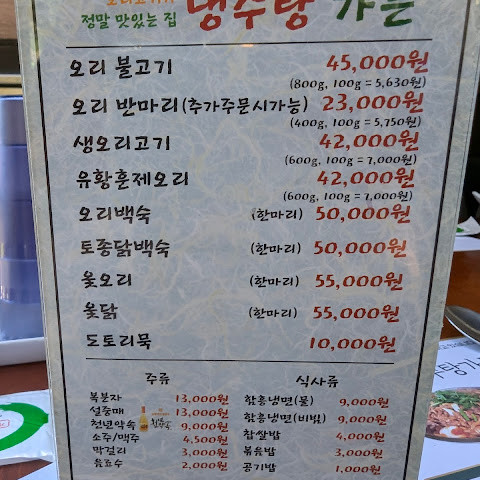 정말 맛있는 집
냉수탕 가든
오리 불고기 45,000원
(800g, 100g = 5,630원)
오리 반마리(추가주문시가능) 23,000원
(400g, 100g = 5,750원)
생오리고기 42,000원
(600g, 100g = 7,000원)
유황훈제오리 42,000원
(600g, 100g = 7,000원)
오리백숙 (한마리) 50,000원
토종닭백숙 (한마리) 50,000원
옻오리 (한마리) 55,000원
옻닭 (한마리) 55,000원
도토리묵 10,000원
주류
복분자 13,000원
설중매 13,000원
천년약속 9,000원
소주/맥주 4,500원
막걸리 3,000원
음료수 2,000원
식사류
함흥냉면(물) 9,000원
함흥냉면(비빔) 9,000원
찹쌀밥 4,000원
볶음밥 3,000원
공기밥 1,000원